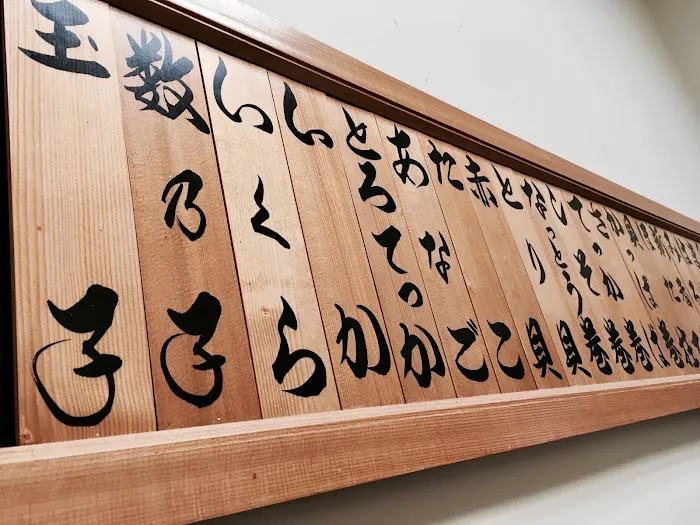 てっか巻
しそ巻
なっとう巻
とり貝
赤貝
たこ
あなご
とろてっか
いか
いくら
数乃子
玉子